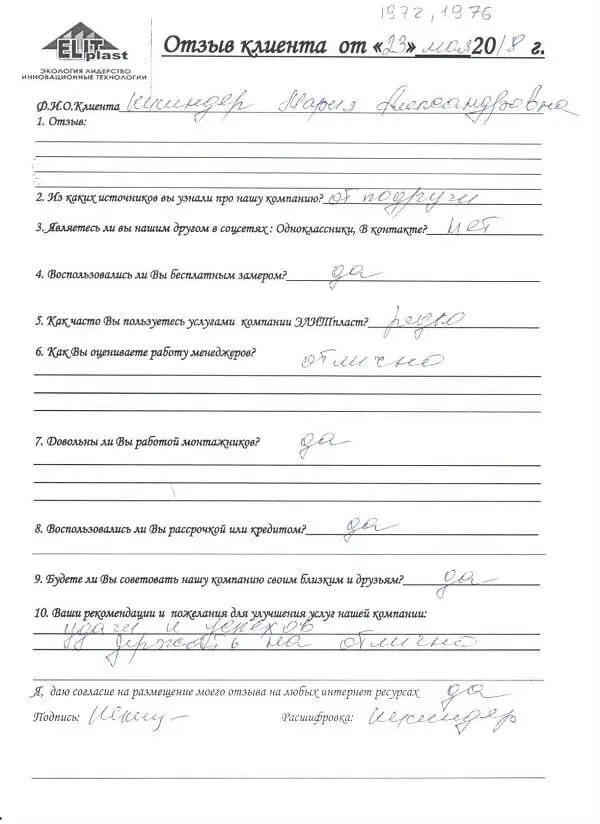 1972, 1976
ELIT plast
ЭКОЛОГИЯ ЛИДЕРСТВО
ИННОВАЦИОННЫЕ ТЕХНОЛОГИИ
Отзыв клиента от «23» мая 2018 г.
Ф.И.О.Клиента Шкиндер Мария Александровна
1. Отзыв:
2. Из каких источников вы узнали про нашу компанию? от подруги
3. Являетесь ли вы нашим другом в соцсетях : Одноклассники, В контакте? нет
4. Воспользовались ли Вы бесплатным замером? да
5. Как часто Вы пользуетесь услугами компании ЭЛИТпласт? редко
6. Как Вы оцениваете работу менеджеров? отлично
7. Довольны ли Вы работой монтажников? да
8. Воспользовались ли Вы рассрочкой или кредитом? да
9. Будете ли Вы советовать нашу компанию своим близким и друзьям? да
10. Ваши рекомендации и пожелания для улучшения услуг нашей компании:
удачи и успехов
держать на отлично
Я, даю согласие на размещение моего отзыва на любых интернет ресурсах да
Подпись: Расшифровка: Шкиндер